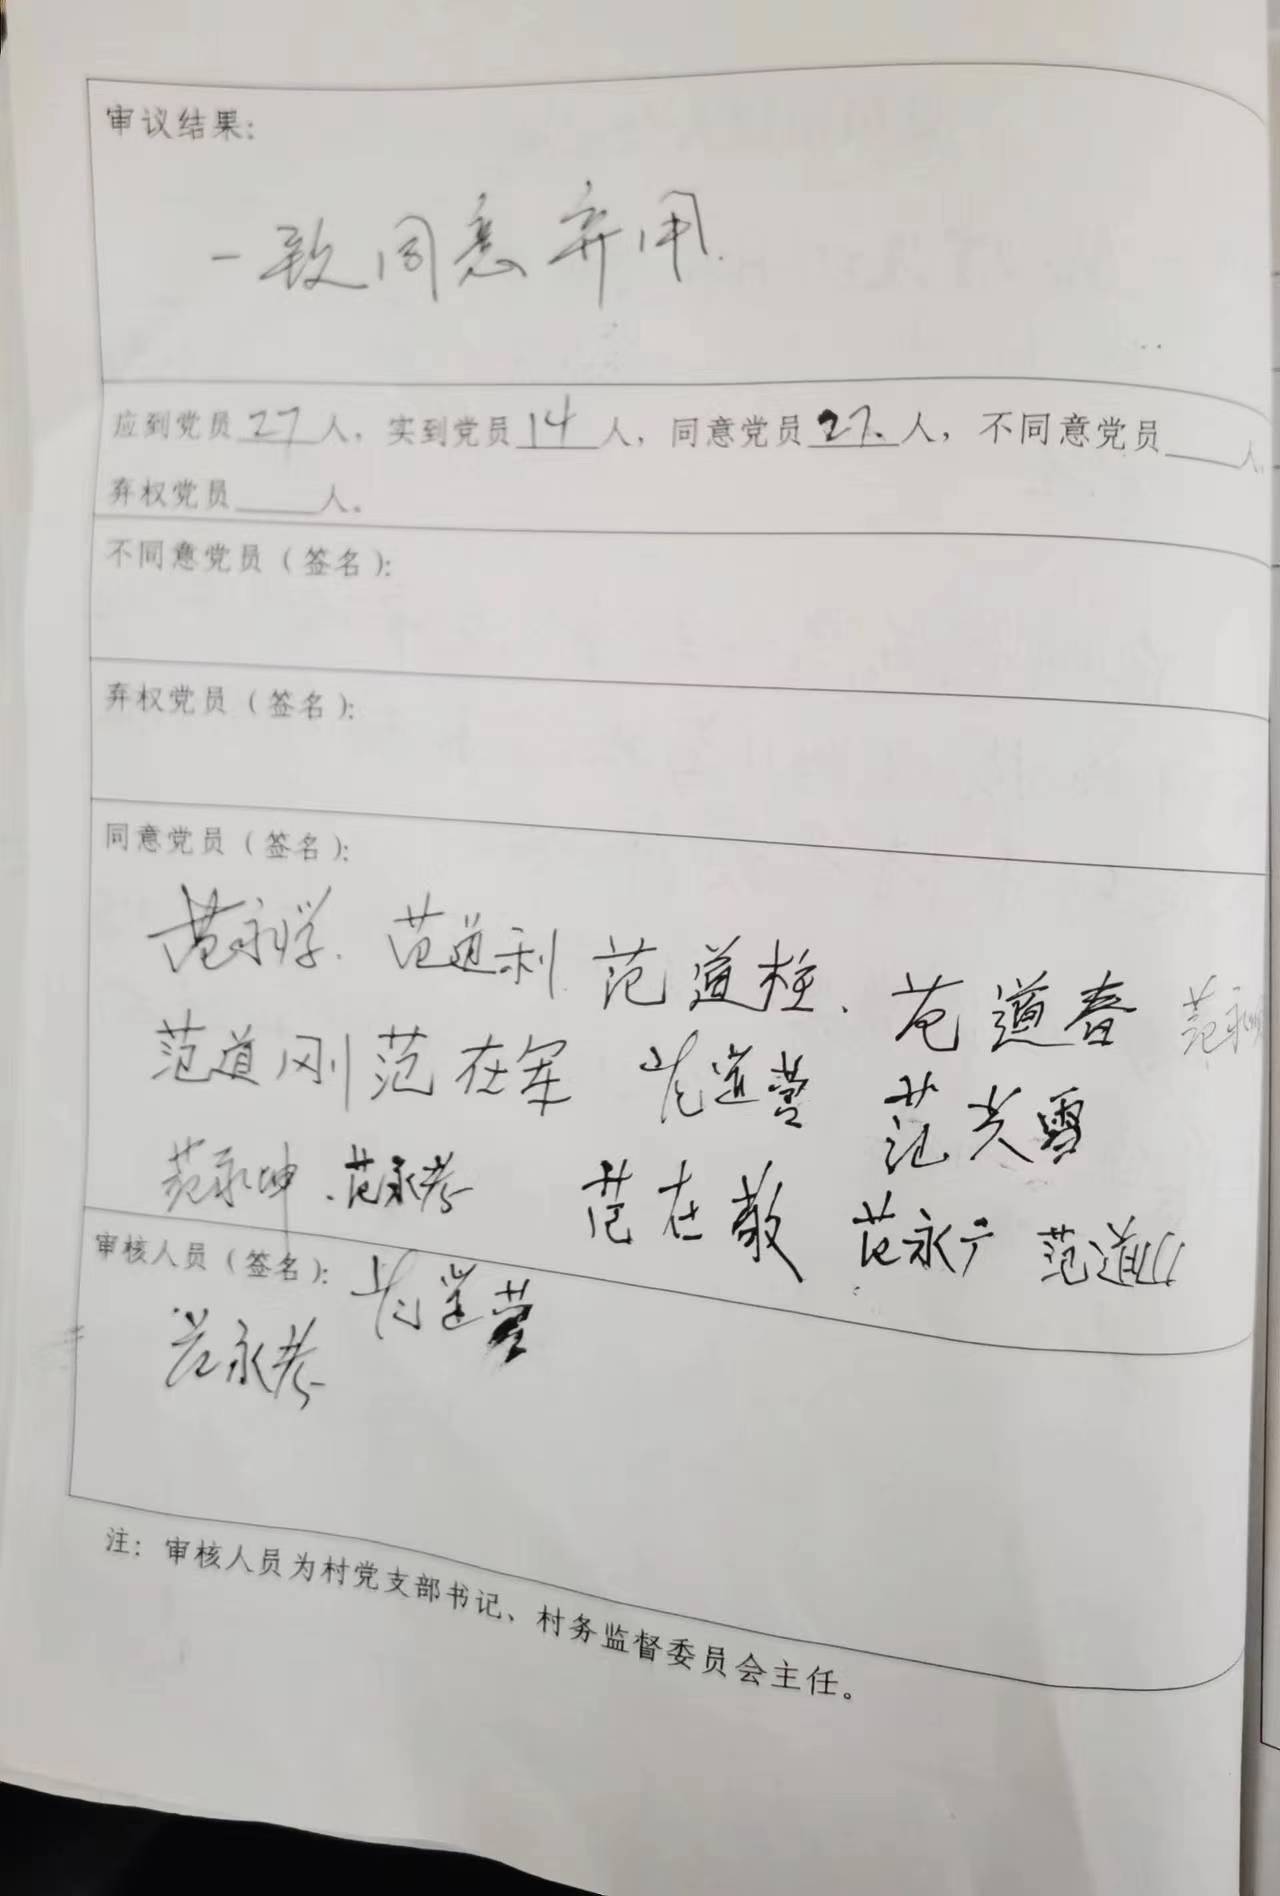 审议结果:
一致同意弃用.
应到党员27人，实到党员14人，同意党员27.人，不同意党员____人，
弃权党员____人。
不同意党员（签名）:
弃权党员（签名）:
同意党员（签名）:
范永学. 范道利 范道柱. 范道春 范永
范道刚 范在军 范道营 范光雪
范永坤. 范永孝 范在敬 范永广 范道
审核人员（签名）: 范道营
范永孝
注：审核人员为村党支部书记、村务监督委员会主任。